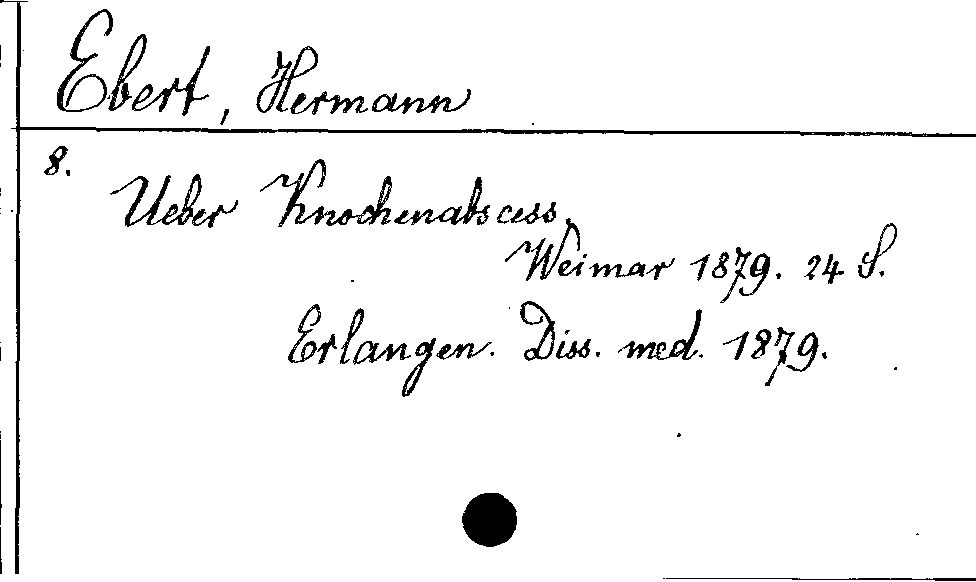 Ebert, Hermann
8.
Ueber Knochenabscess.
Weimar 1879. 24 S.
Erlangen. Diss. med. 1879.